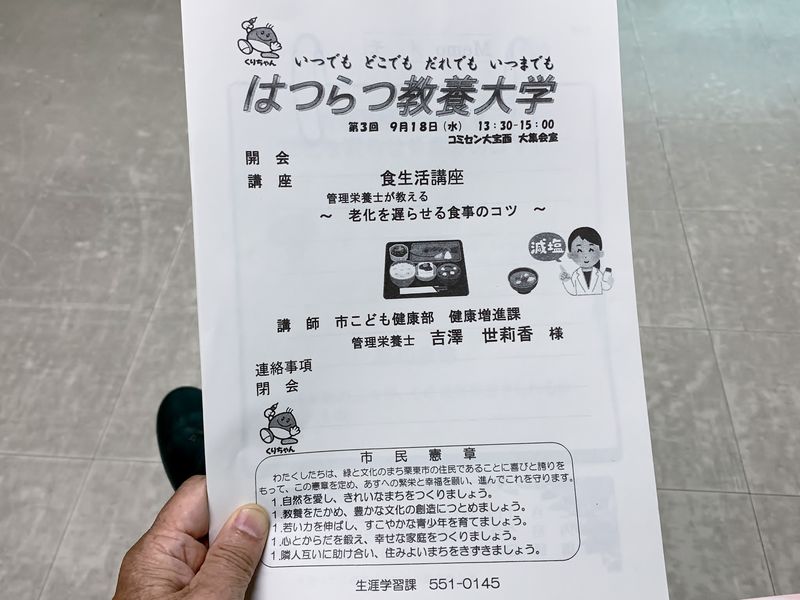 くりちゃん
いつでも どこでも だれでも いつまでも
はつらつ教養大学
第3回 9月18日(水) 13:30-15:00
コミセン大宝西 大集会室
開 会
講 座 食生活講座
管理栄養士が教える
～ 老化を遅らせる食事のコツ ～
減塩
講 師 市こども健康部 健康増進課
管理栄養士 吉澤 世莉香 様
連絡事項
閉 会
くりちゃん
市 民 憲 章
わたくしたちは、緑と文化のまち栗東市の住民であることに喜びと誇りを
もって、この憲章を定め、あすへの繁栄と幸福を願い、進んでこれを守ります。
1.自然を愛し、きれいなまちをつくりましょう。
1.教養をたかめ、豊かな文化の創造につとめましょう。
1.若い力を伸ばし、すこやかな青少年を育てましょう。
1.心とからだを鍛え、幸せな家庭をつくりましょう。
1.隣人互いに助け合い、住みよいまちをきずきましょう。
生涯学習課 551-0145